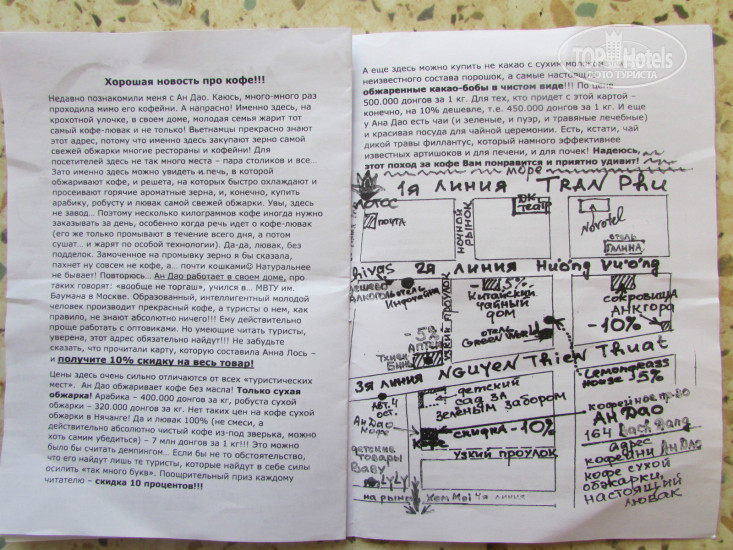 Хорошая новость про кофе!!!
Недавно познакомили меня с Ан Дао. Каюсь, много-много раз
проходила мимо его кофейни. А напрасно! Именно здесь, на
крохотной улочке, в своем доме, молодая семья жарит тот
самый кофе-лювак и не только! Вьетнамцы прекрасно знают
этот адрес, потому что именно здесь закупают зерно самой
свежей обжарки многие рестораны и кофейни! Для
посетителей здесь не так много места – пара столиков и все…
Зато именно здесь можно увидеть и печь, в которой
обжаривают кофе, и решета, на которых быстро охлаждают и
просеивают горячие ароматные зерна, и, конечно, купить
арабику, робусту и лювак самой свежей обжарки. Увы, здесь
не завод… Поэтому несколько килограммов кофе иногда нужно
заказывать за день, особенно когда речь идет о кофе-лювак
(его же только промывают в течение всего дня, а потом
сушат… и жарят по особой технологии). Да-да, лювак, без
подделок. Замоченное на промывку зерно я бы сказала,
пахнет ну совсем не кофе, а… почти кошками☺ Натуральнее
не бывает! Повторюсь… Ан Дао работает в своем доме, про
таких говорят: «вообще не торгаш», учился в… МВТУ им.
Баумана в Москве. Образованный, интеллигентный молодой
человек производит прекрасный кофе, а туристы о нем, как
правило, не знают абсолютно ничего!!! Ему действительно
проще работать с оптовиками. Но умеющие читать туристы,
уверена, этот адрес обязательно найдут!!! Не забудьте
сказать, что прочитали карту, которую составила Анна Лось –
и получите 10% скидку на весь товар!
Цены здесь очень сильно отличаются от всех «туристических
мест». Ан Дао обжаривает кофе без масла! Только сухая
обжарка! Арабика – 400.000 донгов за 1 кг, робуста сухой
обжарки – 320.000 донгов за кг. Нет таких цен на кофе сухой
обжарки в Нячанге! Да и лювак 100% (не смеси, а
действительно абсолютно чистый кофе из-под зверька, можно
хоть самим убедиться) – 7 млн донгов за 1 кг!!! Это можно
было бы считать демпингом… Если бы не то обстоятельство,
что его найдут лишь те туристы, которые найдут в себе силы
осилить «так много букв». Поощрительный приз каждому
читателю – скидка 10 процентов!!!
А еще здесь можно купить не какао с сухим
неизвестного состава порошок, а самые
обжаренные какао-бобы в чистом виде!!! По цене
500.000 донгов за 1 кг. Для тех, кто придет с этой картой –
конечно, на 10% дешевле, т.е. 450.000 донгов за 1 кг. И еще
у Ана Дао есть чаи (и зеленые, и пуэр, и травяные лечебные)
и красивая посуда для чайной церемонии. Есть, кстати, чай
дикой травы филлантус, который намного эффективнее
известных артишоков и для печени, и для почек! Надеюсь,
этот поход за кофе Вам понравится и приятно удивит!
TOP Hotels
ФОТО ТУРИСТА
море
1я линия TRAN Phu
ЛОТОС
почта
НОЧНОЙ РЫНОК
театр
Novotel
отель ГАЛИНА
2я линия Hương Vương
отель
-5%
Китайский чайный дом
отель GREEN
узкий проулок
-5%
сокровища АНКГОРА
-10%
3я линия NGUYEN Thien Thuat
Lemongrass House -5%
авт. 4 ост.
Ан Дао кофе
детский сад за зеленым забором
Кофе
скидка -10%
узкий проулок
кофейное пр-во
АН ДАО
164 Bach Dang
адрес кофейни Ан Дао
кофе сухой обжарки,
настоящий лювак
детские товары BABY
LyLy
на рынок
линия